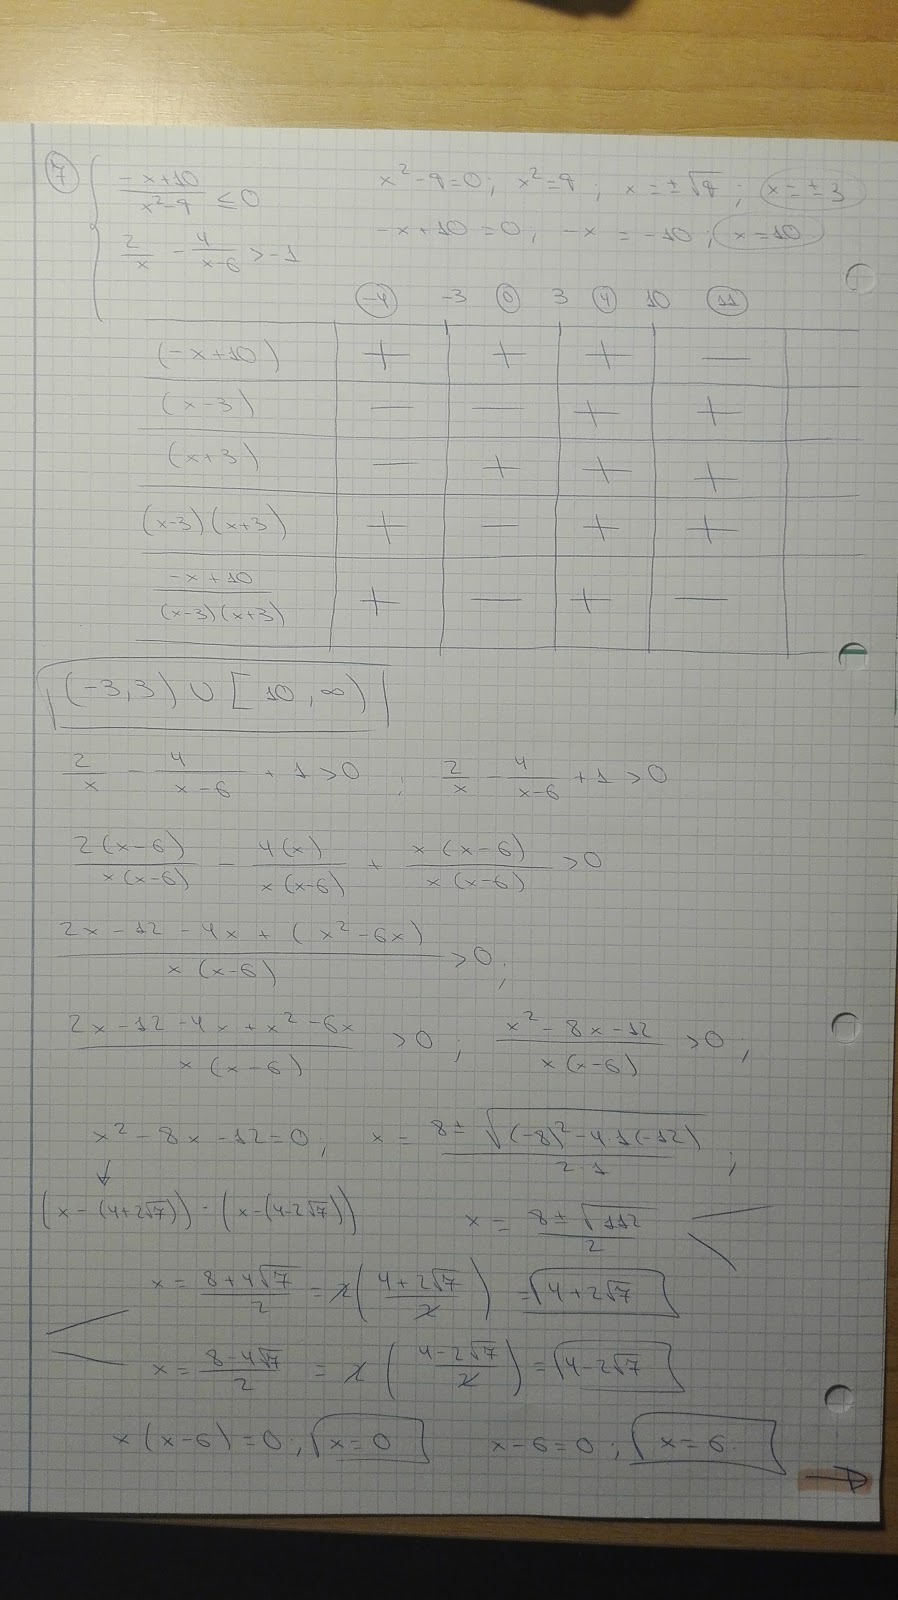 7 { (-x+10)/(x²-9) ≤ 0    x²-9=0; x²=9; x=±√9; x=±3
2/x - 4/(x-6) > -1    -x+10=0; -x=-10; x=10
-4 -3 0 3 4 10 11
(-x+10) + + + −
(x-3) − − + +
(x+3) − + + +
(x-3)(x+3) + − + +
(-x+10)/((x-3)(x+3)) + − + −
(-3,3) ∪ [10,∞)
2/x - 4/(x-6) + 1 > 0 ; 2/x - 4/(x-6) + 1 > 0
2(x-6)/(x(x-6)) - 4(x)/(x(x-6)) + x(x-6)/(x(x-6)) > 0
(2x-12-4x+(x²-6x))/(x(x-6)) > 0;
(2x-12-4x+x²-6x)/(x(x-6)) > 0 ; (x²-8x-12)/(x(x-6)) > 0;
x²-8x-12=0; x = (8±√((-8)²-4·1(-12)))/(2·1) ;
↓
(x-(4+2√7))·(x-(4-2√7))    x = (8±√112)/2
x = (8+4√7)/2 = 2((4+2√7)/2) = 4+2√7
x = (8-4√7)/2 = 2((4-2√7)/2) = 4-2√7
x(x-6)=0; x=0    x-6=0; x=6
→